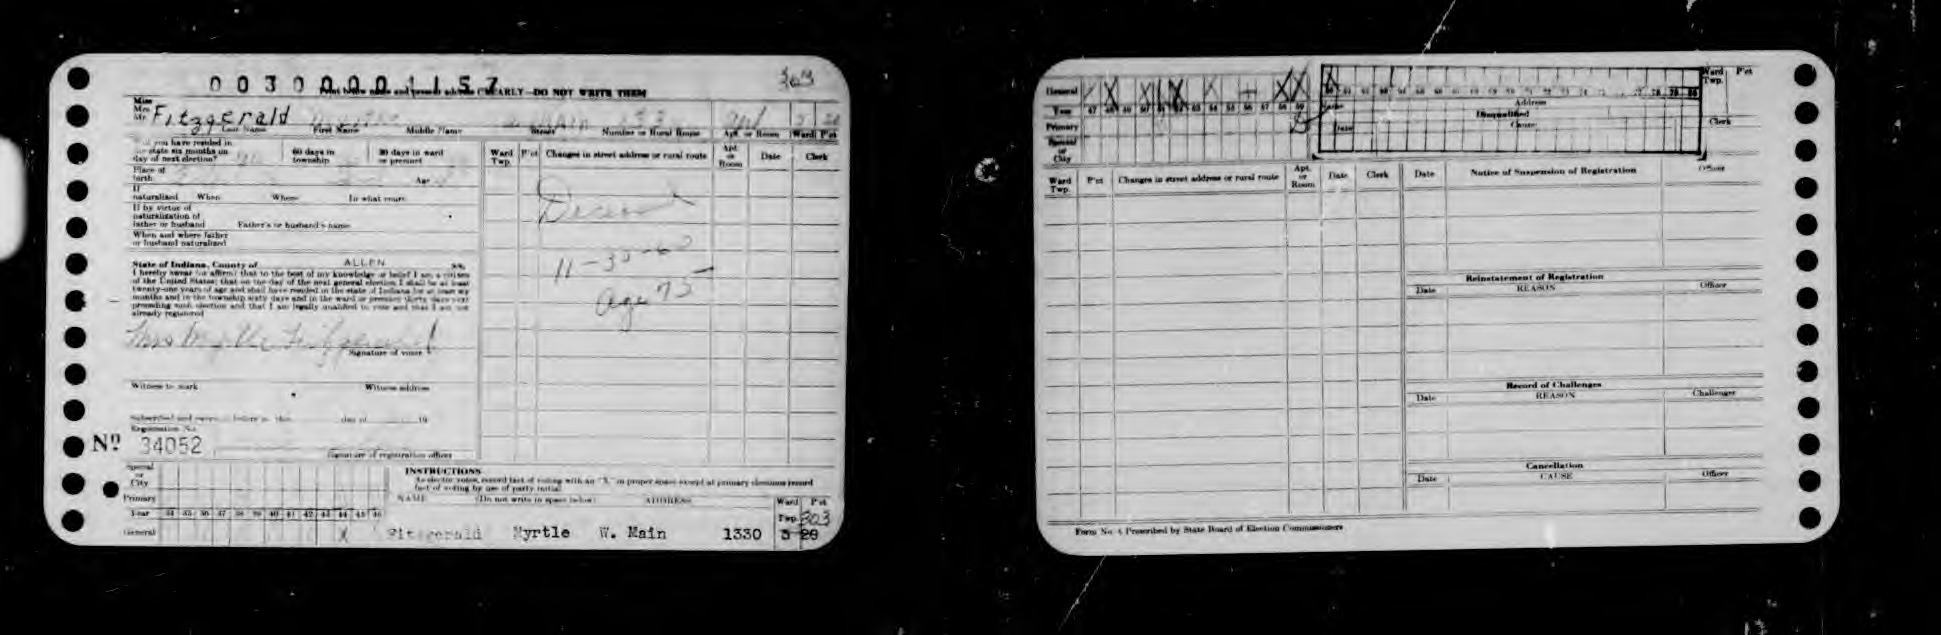 0030000 1157
303
Print below name and present address CLEARLY—DO NOT WRITE THEM
Miss
Mrs.
Mr. Fitzgerald Myrtle W. Main 1330 3 20
Last Name First Name Middle Name Street Number or Rural Route Apt. or Room Ward P'ct
you have resided in
state six months on
day of next election? 60 days in township 30 days in ward or precinct
Place of birth Age
If naturalized When Where In what court
If by virtue of
naturalization of
father or husband Father's or husband's name
When and where father
or husband naturalized
State of Indiana, County of ALLEN ss.
I hereby swear (or affirm) that to the best of my knowledge or belief I am a citizen
of the United States; that on the day of the next general election I shall be at least
twenty-one years of age and shall have resided in the state of Indiana for at least six
months and in the township sixty days and in the ward or precinct thirty days next
preceding such election and that I am legally qualified to vote and that I am not
already registered
Mrs Myrtle Fitzgerald
Signature of voter
Witness to mark Witness address
Subscribed and sworn to before me this day of 19
Registration No.
Nº 34052
Signature of registration officer
Ward Twp. P'ct Changes in street address or rural route Apt. or Room Date Clerk
Deceased
11-30-60
Age 75
Special or City
Primary
Year 34 35 36 37 38 39 40 41 42 43 44 45 46
General X
INSTRUCTIONS
As elector votes, record fact of voting with an "X" in proper space except at primary elections record
fact of voting by use of party initial
NAME (Do not write in space below) ADDRESS Ward P'ct
Twp. 303
Fitzgerald Myrtle W. Main 1330 3 20
General
Year 47 48 49 50 51 52 53 54 55 56 57 58 59
Primary
Special or City
Ward Twp. P'ct
Address
Name Disqualified
Date Cause Clerk
Ward Twp. P'ct Changes in street address or rural route Apt. or Room Date Clerk
Date Notice of Suspension of Registration Officer
Reinstatement of Registration
Date REASON Officer
Record of Challenges
Date REASON Challenger
Cancellation
Date CAUSE Officer
Form No. 4 Prescribed by State Board of Election Commissioners